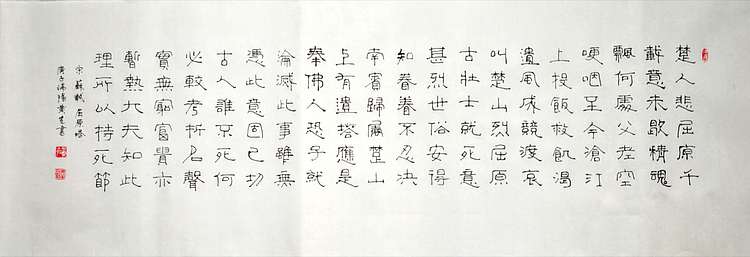 楚人悲屈原千
載意未歇精魂
飄何處父老空
哽咽至今滄江
上投飯救飢渴
遺風成競渡哀
叫楚山裂屈原
古壯士就死意
甚烈世俗安得
知眷眷不忍決
南賓舊屬楚山
上有遺塔應是
奉佛人恐子就
淪滅此事雖無
憑此意固已切
古人誰不死何
必較考折名聲
實無窮富貴亦
暫熱大夫知此
理所以持死節
宋蘇軾屈原塔
庚子 黃 書